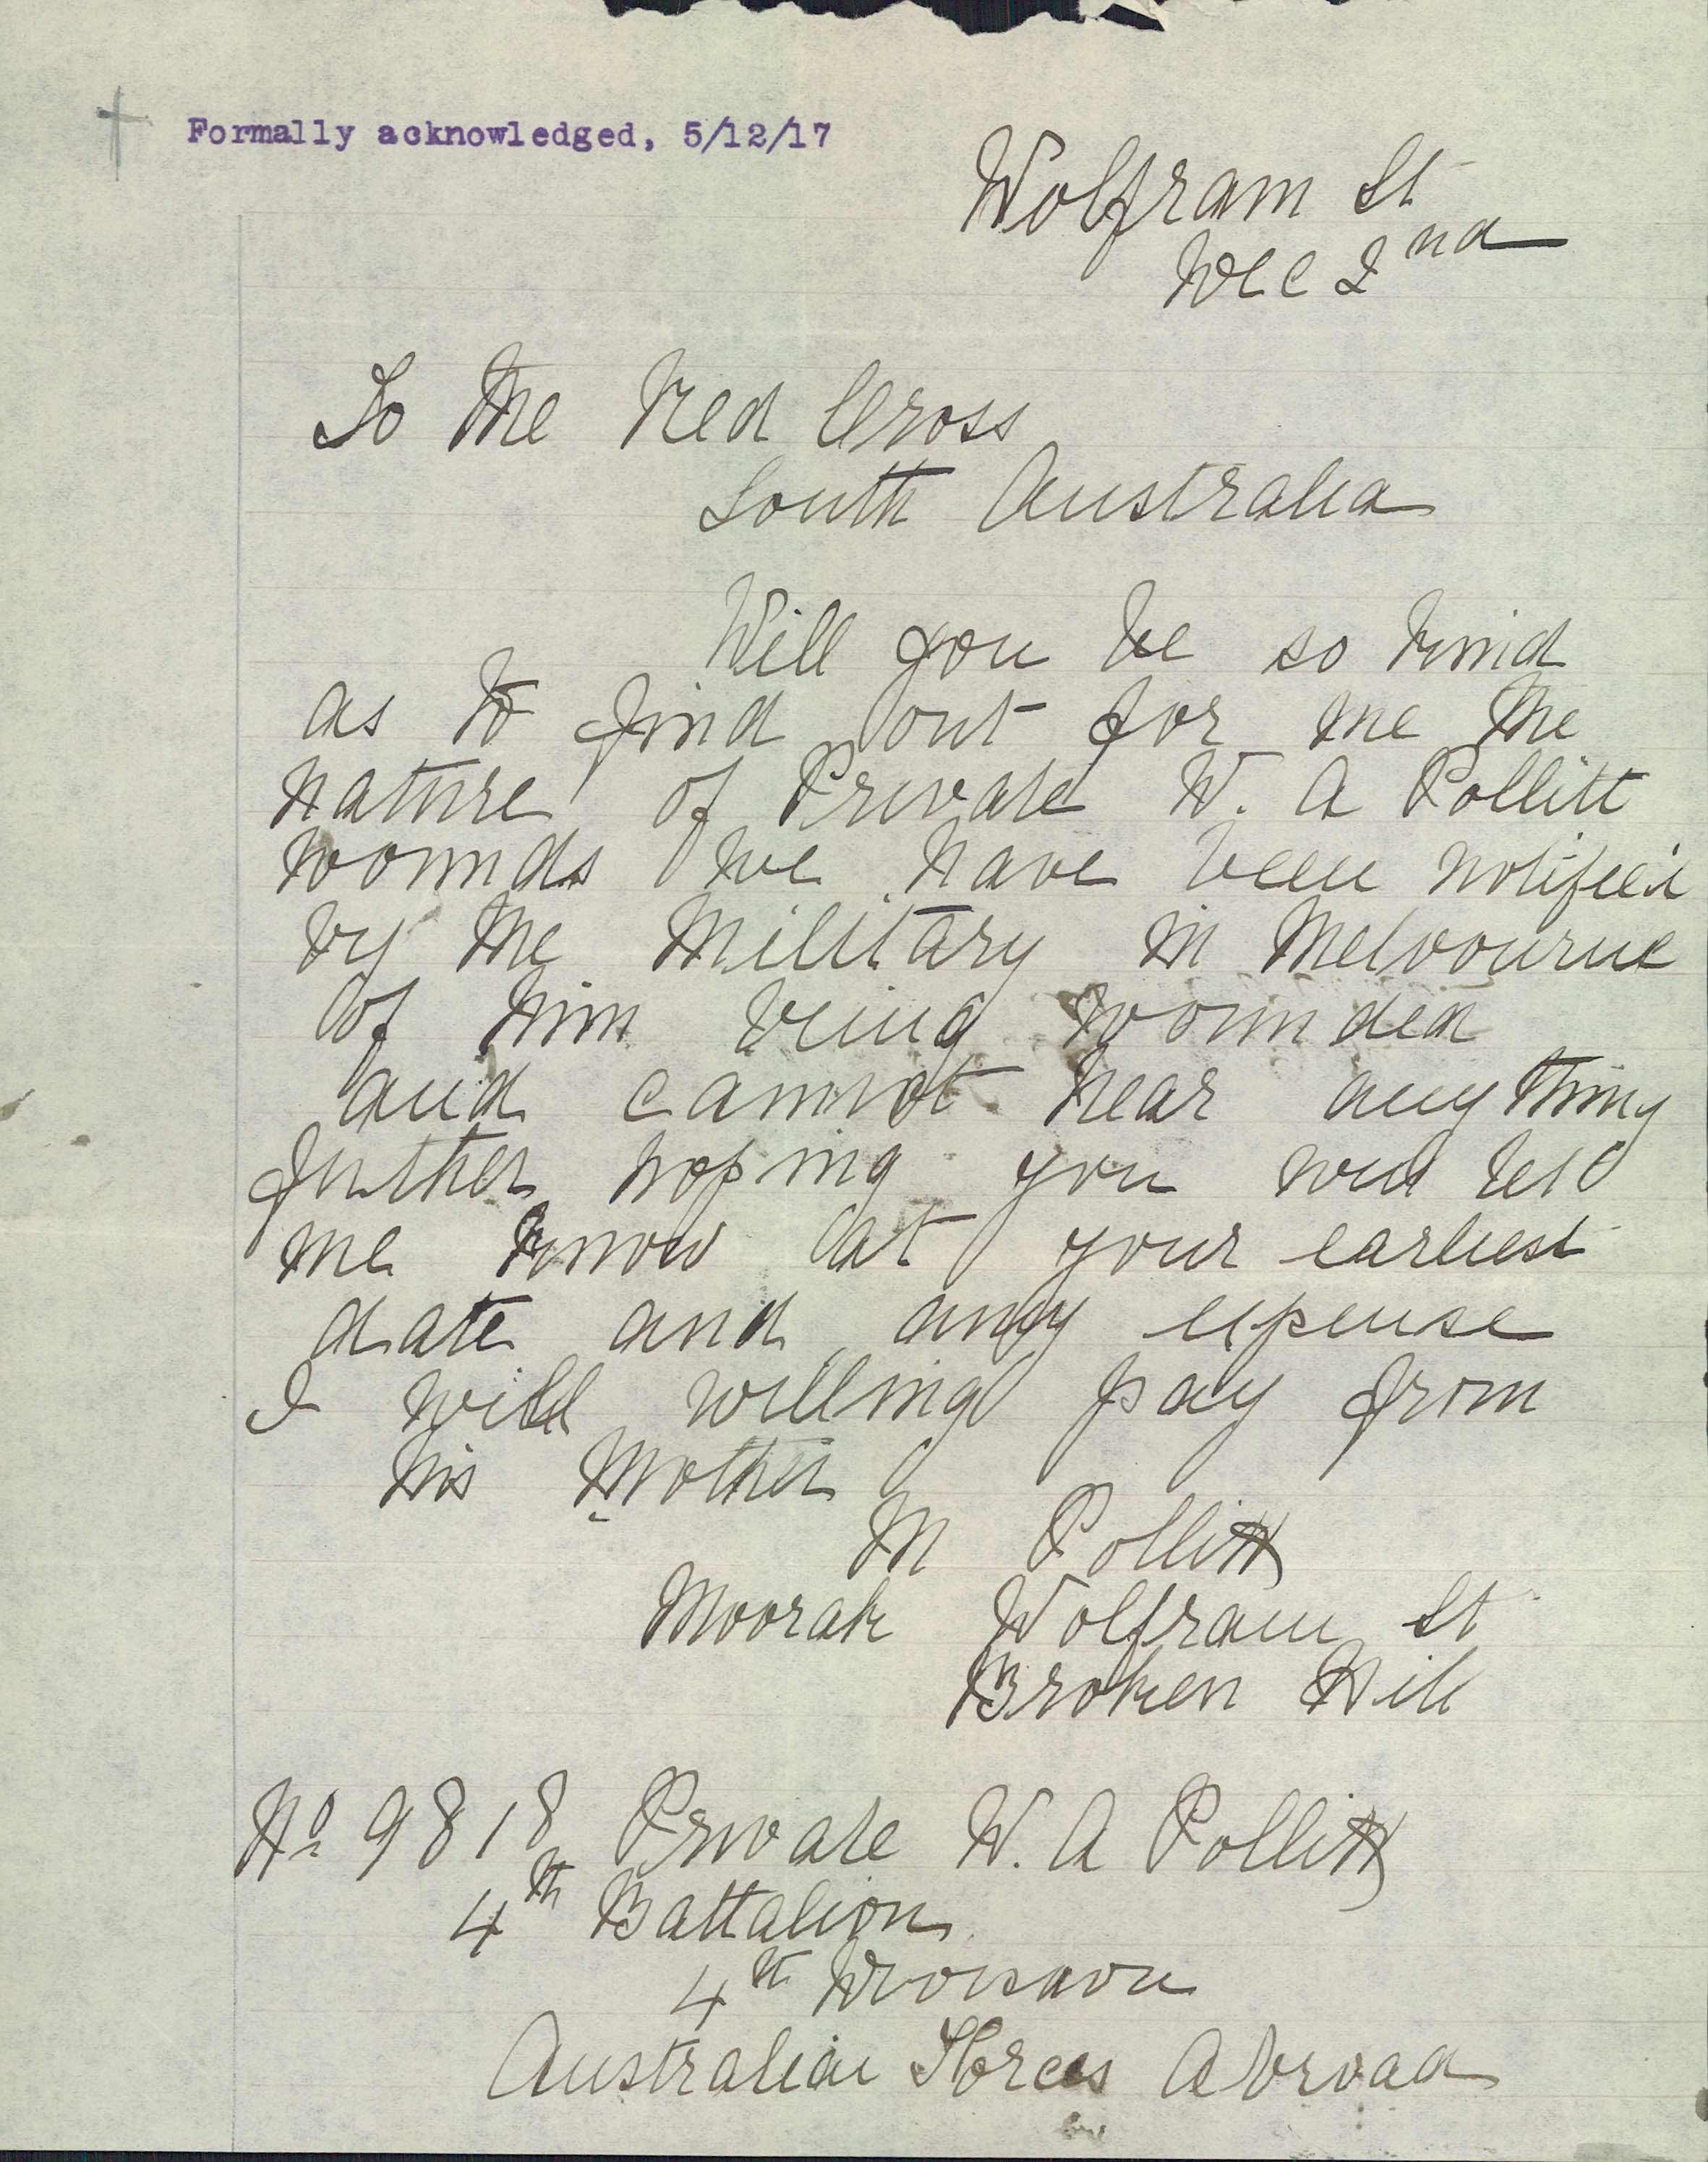 Formally acknowledged, 5/12/17
Wolfram St
Dec 2nd
To the Red Cross
South Australia
Will you be so kind
as to find out for me the
nature of Private W. A Pollitt
wounds we have been notifeed
by the Military in Melbourne
of him being wounded
and cannot hear any thing
futher hoping you will let
me know at your earliest
date and any expense
I will willing pay from
his Mother
M Pollitt
Moorak Wolfram St
Broken Hill
No 9818 Private W. A Pollitt
4th Battalion
4th Division
Australian Forces Abroad